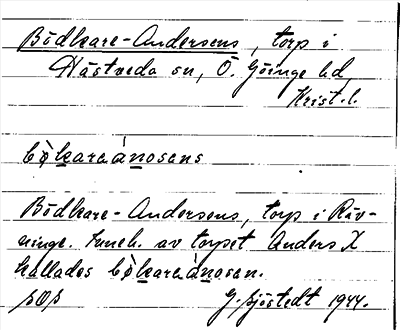 Bödkare-Andersens, torp i
Hästveda sn, Ö. Göinge hd,
Krist. l.
bø̀kareànosens
Bödkare-Andersens, torp i Röv-
ninge. Inneh. av torpet Anders X
kallades bø̀kareànosen.
G. Sjöstedt 1944.